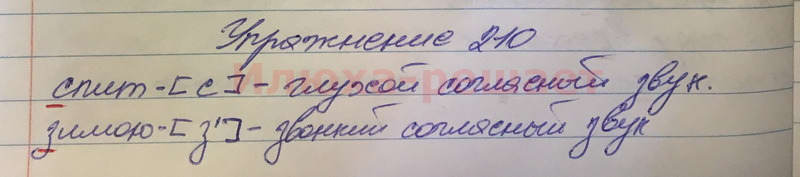 Упражнение 210
спит-[с]-глухой согласный звук.
зимою-[з']-звонкий согласный звук
Илюха-решает